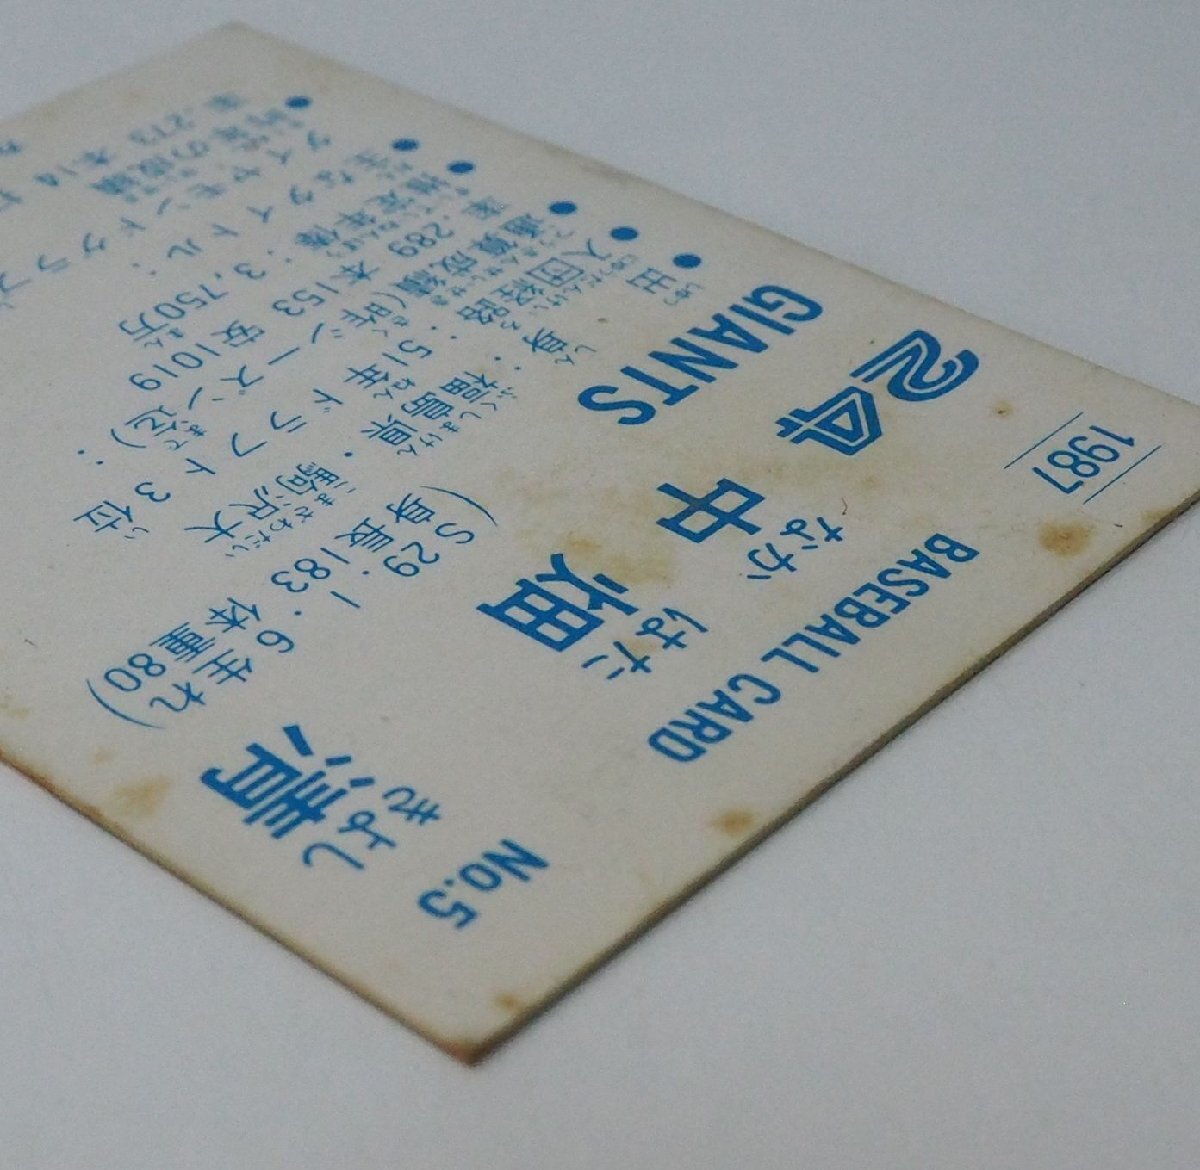 1987
BASEBALL CARD
No.5
24
なか
はだ
きよし
中畑清
GIANTS
(S29・1・6生れ
身長183 体重80)
●出身・福島県・駒沢大
●入団経路・51年ドラフト3位
●通算成績(昨シーズン迄)：
289 本153 安1019
●推定年俸：3,750万
なタイトル：
ダイヤモンドグラブ
の成績
.273 本14